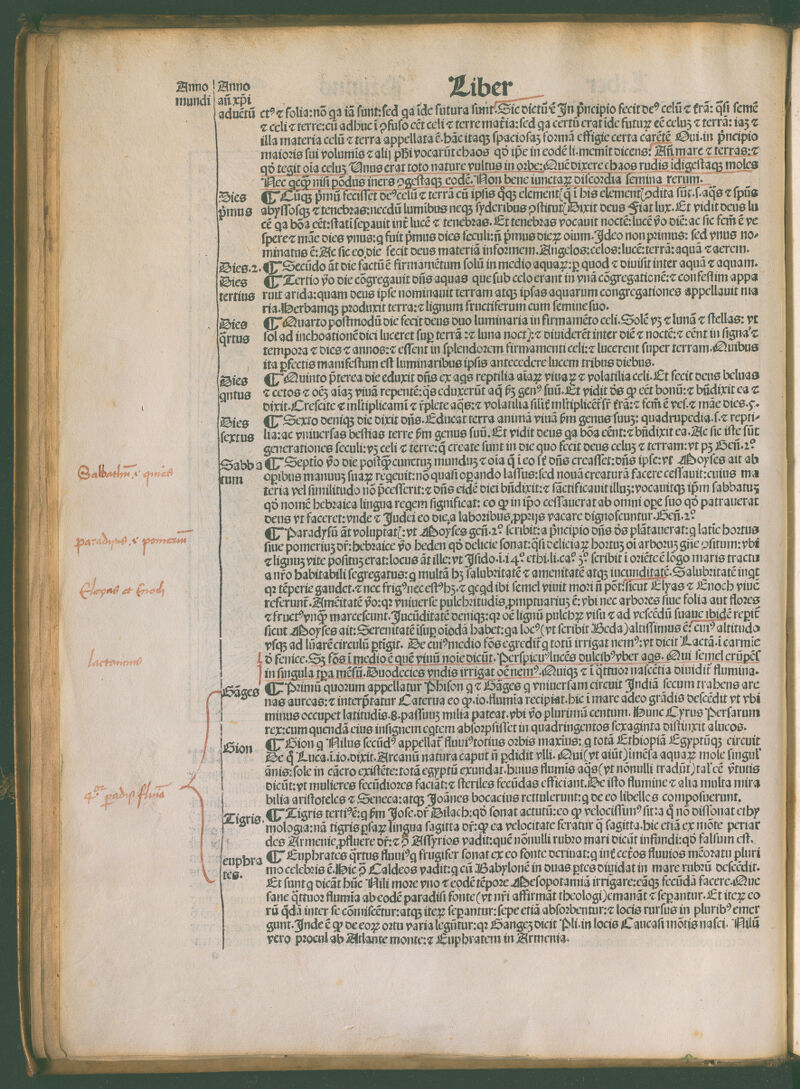 Liber
Anno mundi
Anno añ xp̄i aduētū
ctꝰ ⁊ folia: nō qa iā sunt: sed qa īde futura sunt. Sic dictū ē In p̄ncipio fecit deꝰ celū ⁊ t̄rā: q̄si semē
⁊ celi ⁊ terre: cū adhuc ī ꝯfuso eēt celi ⁊ terre mat̄ia: sed qa certū erat īde futuꝝ eē celuꝫ ⁊ terrā: iaꝫ ⁊
illa materia celū ⁊ terra appellata ē. hāc itaqꝫ spaciosaꝫ formā effigie certa carētē Oui. in p̄ncipio
maioris sui volumīs ⁊ alij ph̄i vocarūt chaos qd̄ ip̄e in eodē li. meminit dicens: Añ mare ⁊ terras: ⁊
qd̄ tegit oīa celuꝫ Unus erat toto nature vultus in orbe: Quē dixere chaos rudis īdigestaqꝫ moles
Nec qcꝙ̄ nisi pōdus iners ꝯgestaqꝫ eodē. Non bene iunctaꝝ discordia semina rerum.
Dies p̄mus
¶ Cūqꝫ p̄mū fecisset deꝰ celū ⁊ terrā cū ipsis qͥbꝫ element̄ ꝗ ī his element̄ ꝯdita sūt. s. aqͥs ⁊ sp̄us
abyssosqꝫ ⁊ tenebras: necdū lumibus neqꝫ syderibus ꝯstitut̄ Dixit deus Fiat lux. Et vidit deus lu
cē qa bōa eēt: stati separauit int̄ lucē ⁊ tenebras. Et tenebras vocauit noctē: lucē v̄o diē: ac sic fcm̄ ē ve
spere ⁊ māe dies vnus: q fuit p̄mus dies seculi: ñ p̄mus dieꝝ oium. Ideo non primus: sed vnus no-
minatus ē: Ac sic eo die fecit deus materiā informem. Angelos: celos: lucē: terrā: aquā ⁊ aerem.
Dies. 2.
¶ Secūdo āt die factū ē firmamētum solū in medio aquaꝝ: ꝑ quod ⁊ diuisit inter aquā ⁊ aquam.
Dies tertius
¶ Tertio v̄o die cōgregauit dn̄s aquas que sub celo erant in vnā cōgregationē: ⁊ confestim appa
ruit arida: quam deus ipse nominauit terram atqꝫ ipsas aquarum congregationes appellauit ma
ria. Herbamqꝫ produxit terra: ⁊ lignum fructiferum cum semine suo.
Dies q̄rtus
¶ Quarto postmodū die fecit deus duo luminaria in firmamēto celi. Solē vꝫ ⁊ lunā ⁊ stellas: vt
sol ad inchoationē diei luceret sup terrā: ⁊ luna noct̄: ⁊ diuiderēt inter diē ⁊ noctē: ⁊ eēnt in signa ⁊
tempora ⁊ dies ⁊ annos: ⁊ essent in splendorem firmamenti celi: ⁊ lucerent super terram. Quibus
ita ꝑfectis manifestum est luminaribus ipsis antecedere lucem tribus diebus.
Dies qntus
¶ Quinto p̄terea die eduxit dn̄s ex aqs reptilia aīaꝝ viuaꝝ ⁊ volatilia celi. Et fecit deus beluas
⁊ cetos ⁊ oēꝫ aīaꝫ viuā repentē: q̄s eduxerūt aq̄ ꝑꝫ genꝰ suū. Et vidit dn̄s ꝙ eēt bonū: ⁊ bn̄dixit ea ⁊
dixit. Crescite ⁊ mltiplicamī ⁊ r̄plete aq̄s: ⁊ volatilia silit̄ mltiplicēt̄ sr̄ t̄rā: ⁊ fcm̄ ē ves. ⁊ māe dies. 5.
Dies sextus
¶ Sexto deniqꝫ die dixit dn̄s. Educat terra animā viuā ẜm genus suuꝫ: quadrupedia. s. ⁊ repti-
lia: ac vniuersas bestias terre ẜm genus suū. Et vidit deus qa bōa cēnt: ⁊ bn̄dixit ea. Ac sic iste sūt
generationes seculi: vꝫ celi ⁊ terre: q̄ create sunt in die quo fecit deus celuꝫ ⁊ terram: vt pꝫ Geñ. 2º
Sabbatum
¶ Septīo v̄o die postꝙ̄ cunctus munduꝫ ⁊ oīa q̄ ī eo st̄ dn̄s creasset: dn̄s ipse: vt Moyses ait ab
opibus manuuꝫ suaꝝ reqeuit: nō quasi opando lassus: sed nouā creaturā facere cessauit: cuius ma
teria vel similitudo nō p̄cesserit: ⁊ dn̄s eidē diei bn̄dixit: ⁊ sāctificauit illuꝫ: vocauitqꝫ ip̄m sabbatuꝫ
qd̄ nomē hebraica lingua reqem significat: eo ꝙ in ip̄o cessauerat ab omni ope suo qd̄ patrauerat
deus vt faceret: vnde ⁊ Judei eo die, a laboribus, ꝓprijs vacare dignoscuntur. Geñ. 2º
¶ Paradysū āt voluptat̄: vt Moyses geñ. 2º scribit: a p̄ncipio dn̄s ds̄ plātauerat: q latie hortus
siue pomeriuꝫ dr̄: hebraice v̄o heden qd̄ delicie sonat: q̄si deliciaꝝ hortuꝫ oī arboruꝫ gn̄e ꝯsitum: vbi
⁊ lignuꝫ vite positus erat: locus āt ille: vt Isido. i. 14º ethi. li. caº 3º scribit ī oriētē ē lōgo maris tractu
a nr̄o habitabili segregatus: q multā hꝫ salubritatē ⁊ amenitatē atqꝫ iucunditatē. Salubritatē inqt
qꝛ tēperie gaudet. ⁊ nec frigꝰ nec estꝰ hꝫ. ⁊ qcqd ibi semel viuit mori ñ pōt: sicut Elyas ⁊ Enoch viuē
referunt̄. Amēitatē v̄o: qꝛ vniuerse pulchritudis, ꝓmptuariuꝫ ē: vbi nec arbores siue folia aut flores
⁊ fructꝰ vnꝙ̄ marcescunt. Jucūditatē deniqꝫ: qꝛ oē lignū pulchꝝ visu ⁊ ad vescēdū suaue ibidē repit̄
sicut Moyses ait: Serenitatē īsup oīodā habet: qa locꝰ (vt scribit Beda) altissimus ē: cuiꝰ altitudo
vsqꝫ ad lūarē circulū ptigit. De cuiꝰ medio fōs egredit̄ q totū irrigat nemꝰ: vt dicit Lactā. i carmie
d̄ fenice. Sꝫ fōs ī medio ē quē viuū noie dicūt. Perspicuꝰ lucēs dulcibꝰ vber aqs. Qui semel erūpēs
in singula tp̄a mēsū. Duodecies vndis irrigat oē nemꝰ. Quiqꝫ ⁊ ī qttuor nascētia diuidit̄ flumina.
Gāges
¶ Primū quorum appellatur Phison q ⁊ Gāges q vniuersam circuit Indiā secum trahens are
nas aureas: ⁊ interp̄tatur Caterua eo ꝙ. io. flumia recipiat. hic ī mare adeo grādis descēdit vt vbi
minus occupet latitudīs. 8. passuuꝫ milia pateat. vbi v̄o plurimū centum. Hunc Cyrus Persarum
rex: cum quendā eius insignem eqtem absorpsisset in quadringentos sexaginta distinxit alueos.
Gion
¶ Gion q Nilus secūdꝰ appellat̄ fluuiꝰ totius orbis maxīus: q totā Ethiopiā Egyptūqꝫ circuit
De q̊ Luca. i. io. dixit. Arcanū natura caput ñ pdidit vlli. Qui (vt aiūt) īmēsa aquaꝝ mole singul̄
ānis: sole in cācro existēte: totā egyptū exundat. huius flumīs aqs (vt nōnulli tradūt) tal cē v̄tutis
dicūt: vt mulieres fecūdiores faciāt: ⁊ steriles fecūdas efficiant. De isto flumine ⁊ alia multa mira
bilia aristoteles ⁊ Seneca: atqꝫ Joānes bocacius rettulerunt: q de eo libellos composuerunt.
Tigris.
¶ Tigris tertiꝰ ē: q ẜm Jose. dr̄ Dilach: qd̄ sonat acutū: eo ꝙ velocissimꝰ sit: a q̊ nō dissonat ethy
mologia: nā tigris ꝑsaꝝ lingua sagitta dr̄: ꝙ ea velocitate feratur q̄ sagitta. hic etiā ex mōte periar
des Armenie, ꝓfluere dr̄: ⁊ ꝯ Assyrios vadit: quē nōnulli rubro mari dicūt infundi: qd̄ falsum est.
euphrates.
¶ Euphrates q̄rtus fluuiꝰ q frugifer sonat ex eo fonte deriuat̄: q int̄ cetos fluuios mēoratu pluri
mo celebris ē. Hic ꝯ Caldeos vadit: q cū Babylonē in duas ptes diuidat in mare rubrū descēdit.
Et sunt q dicāt hūc Nili more vno ⁊ eodē tēpore Mesopotamiā irrigare: eāqꝫ fecūdā facere. Que
sane qttuor flumīa ab eodē paradisi fonte (vt nr̄i affirmāt theologi) emanāt ⁊ separantur. Et iteꝝ eo
rū qdā inter se cōmiscētur: atqꝫ iteꝝ sepantur: sepe etiā absorbentur: ⁊ locis rursus in pluribꝰ emer
gunt. Inde ē ꝙ de eoꝝ ortu varia legūtur: qꝛ Gangeꝫ dicit Pli. in locis Caucasi mōtis nasci. Nilū
vero procul ab Atlante monte: ⁊ Euphratem in Armenia.
paradysus ⁊ pomeriū
Elyas et Enoch
lactancius